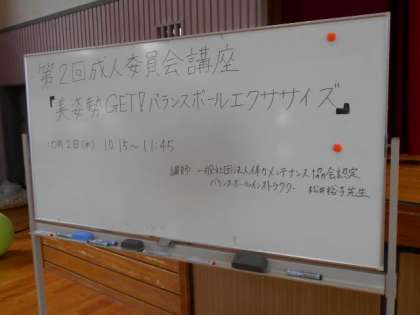 第2回成人委員会講座
『美姿勢GET!バランスボールエクササイズ』
10月2日(水) 10:15~11:45
講師:一般社団法人体力メンテナンス協会認定
バランスボールインストラクター 松井裕子先生